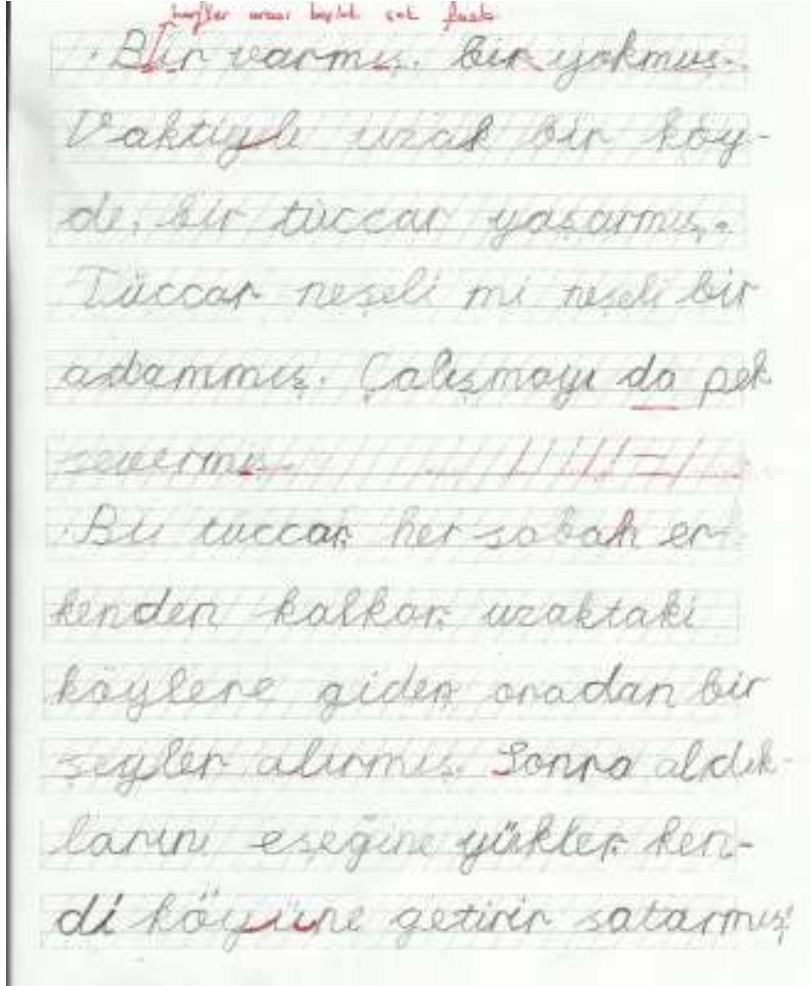 harfler arası boşluk çok fazla
Bir varmış, bir yokmuş.
Vaktiyle uzak bir köy-
de, bir tüccar yaşarmış.
Tüccar neşeli mi neşeli bir
adammmış. Çalışmayı da pek
severmiş.
Bu tuccar, her sabah er-
kenden kalkar, uzaktaki
köylere gider, oradan bir
şeyler alırmış. Sonra aldık-
larını eşeğine yükler, ken-
di köyüne getirir satarmış.